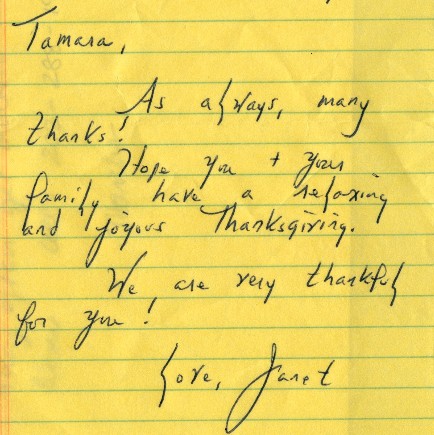 Tamara,
As always, many
thanks!
Hope you + your
family have a relaxing
and joyous Thanksgiving.
We are very thankful
for you!
Love, Janet